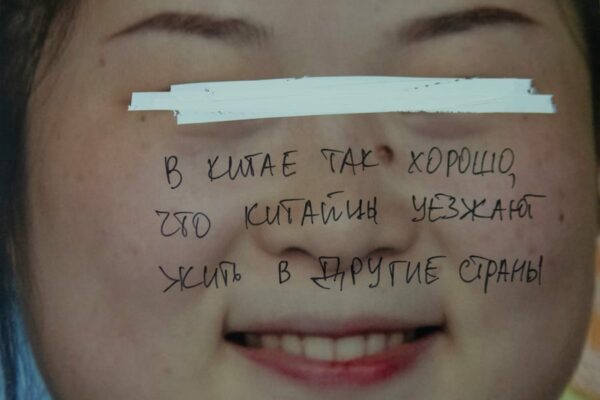 В КИТАЕ ТАК ХОРОШО,
ЧТО КИТАЙЦЫ УЕЗЖАЮТ
ЖИТЬ В ДРУГИЕ СТРАНЫ